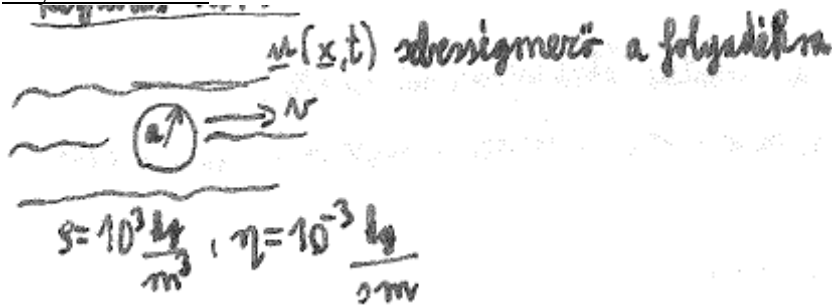 u(x,t) sebességmező a folyadékra
a
v
ρ=10³ kg/m³, η=10⁻³ kg/sm